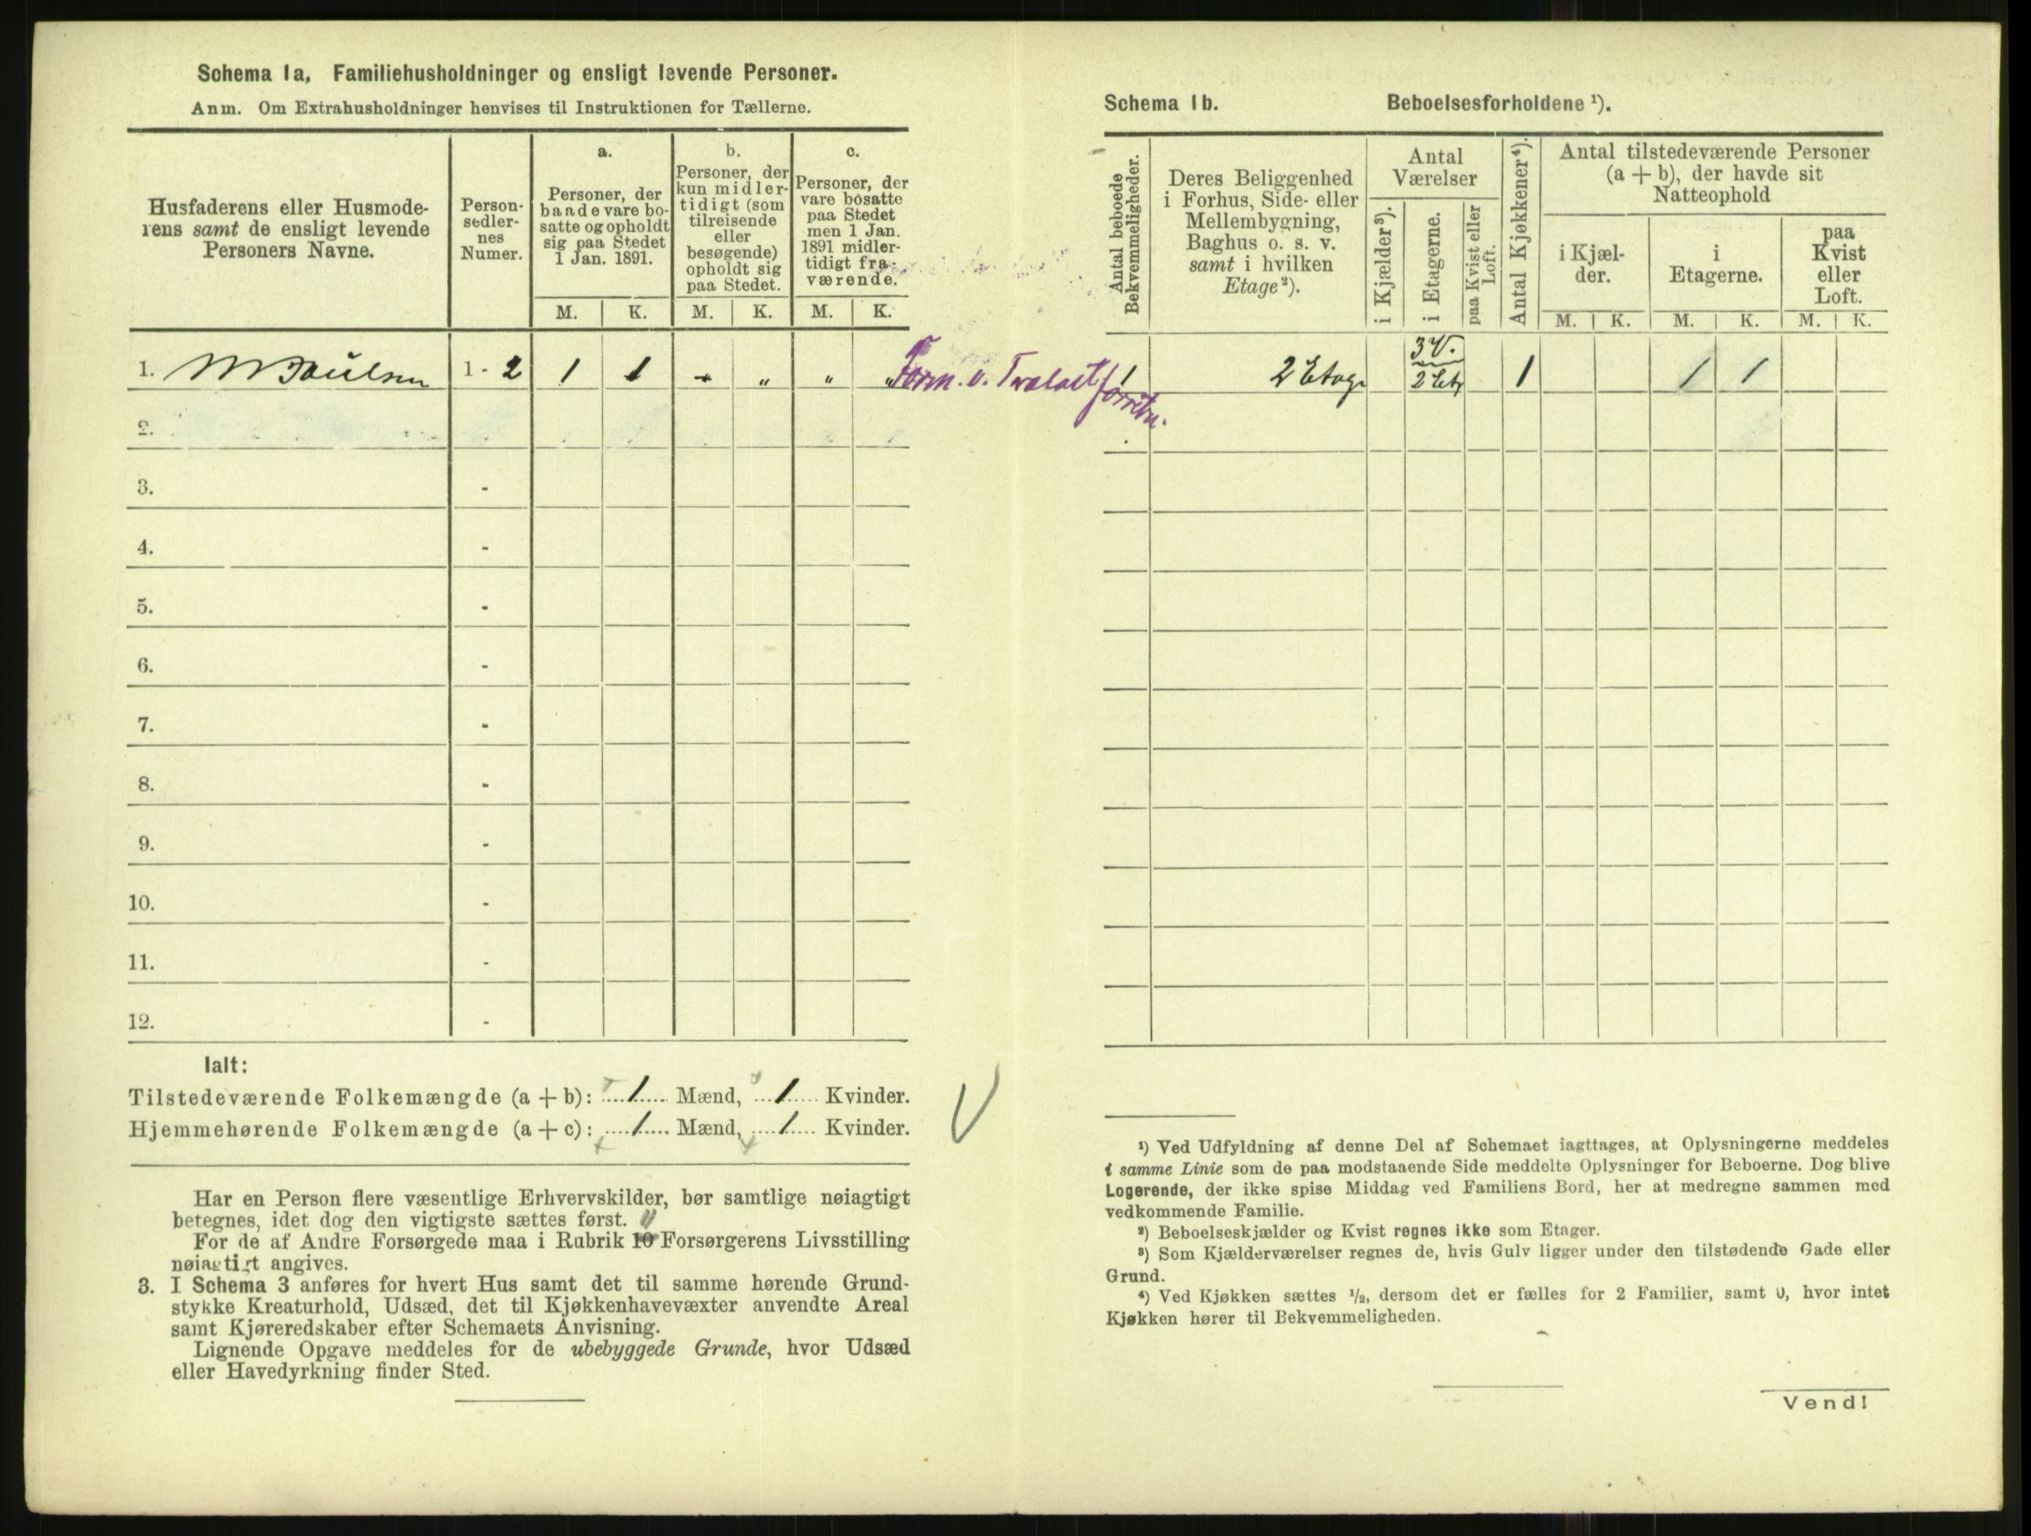 Schema 1a, Familiehusholdninger og ensligt levende Personer.
Anm. Om Extrahusholdninger henvises til Instruktionen for Tællerne.
Husfaderens eller Husmode-
rens samt de ensligt levende
Personers Navne.
Person-
sedler-
nes
Numer.
a.
Personer, der
baade vare bo-
satte og opholdt
sig paa Stedet
1 Jan. 1891.
b.
Personer, der
kun midler-
tidigt (som
tilreisende
eller
besøgende)
opholdt sig
paa Stedet.
c.
Personer, der
vare bosatte
paa Stedet
men 1 Jan.
1891 midler-
tidigt fra-
værende.
M. K. M. K. M. K.
1. M Paulsen 1 - 2 1 1 - „ „ „ Form. v. Trælastforretn.
2.
3. -
4. -
5. -
6. -
7. -
8. -
9. -
10. -
11. -
12. -
Ialt:
Tilstedeværende Folkemængde (a + b): 1 Mænd, 1 Kvinder.
Hjemmehørende Folkemængde (a + c): 1 Mænd, 1 Kvinder.
Har en Person flere væsentlige Erhvervskilder, bør samtlige nøiagtigt
betegnes, idet dog den vigtigste sættes først.
For de af Andre Forsørgede maa i Rubrik 10 Forsørgerens Livsstilling
nøiagtigt angives.
3. I Schema 3 anføres for hvert Hus samt det til samme hørende Grund-
stykke Kreaturhold, Udsæd, det til Kjøkkenhavevæxter anvendte Areal
samt Kjøreredskaber efter Schemaets Anvisning.
Lignende Opgave meddeles for de ubebyggede Grunde, hvor Udsæd
eller Havedyrkning finder Sted.
Schema 1b. Beboelsesforholdene ¹).
Antal beboede
Bekvemmeligheder.
Deres Beliggenhed
i Forhus, Side- eller
Mellembygning,
Baghus o. s. v.
samt i hvilken
Etage²).
Antal
Værelser
i Kjælder³).
i Etagerne.
paa Kvist eller
Loft.
Antal Kjøkkener⁴).
Antal tilstedeværende Personer
(a + b), der havde sit
Natteophold
i Kjæl-
der.
i
Etagerne.
paa
Kvist
eller
Loft.
M. K. M. K. M. K.
1 2 Etage 3 V. 2 Etg 1 1 1
¹) Ved Udfyldning af denne Del af Schemaet iagttages, at Oplysningerne meddeles
i samme Linie som de paa modstaaende Side meddelte Oplysninger for Beboerne. Dog blive
Logerende, der ikke spise Middag ved Familiens Bord, her at medregne sammen med
vedkommende Familie.
²) Beboelseskjælder og Kvist regnes ikke som Etager.
³) Som Kjælderværelser regnes de, hvis Gulv ligger under den tilstødende Gade eller
Grund.
⁴) Ved Kjøkken sættes ½, dersom det er fælles for 2 Familier, samt 0, hvor intet
Kjøkken hører til Bekvemmeligheden.
Vend!